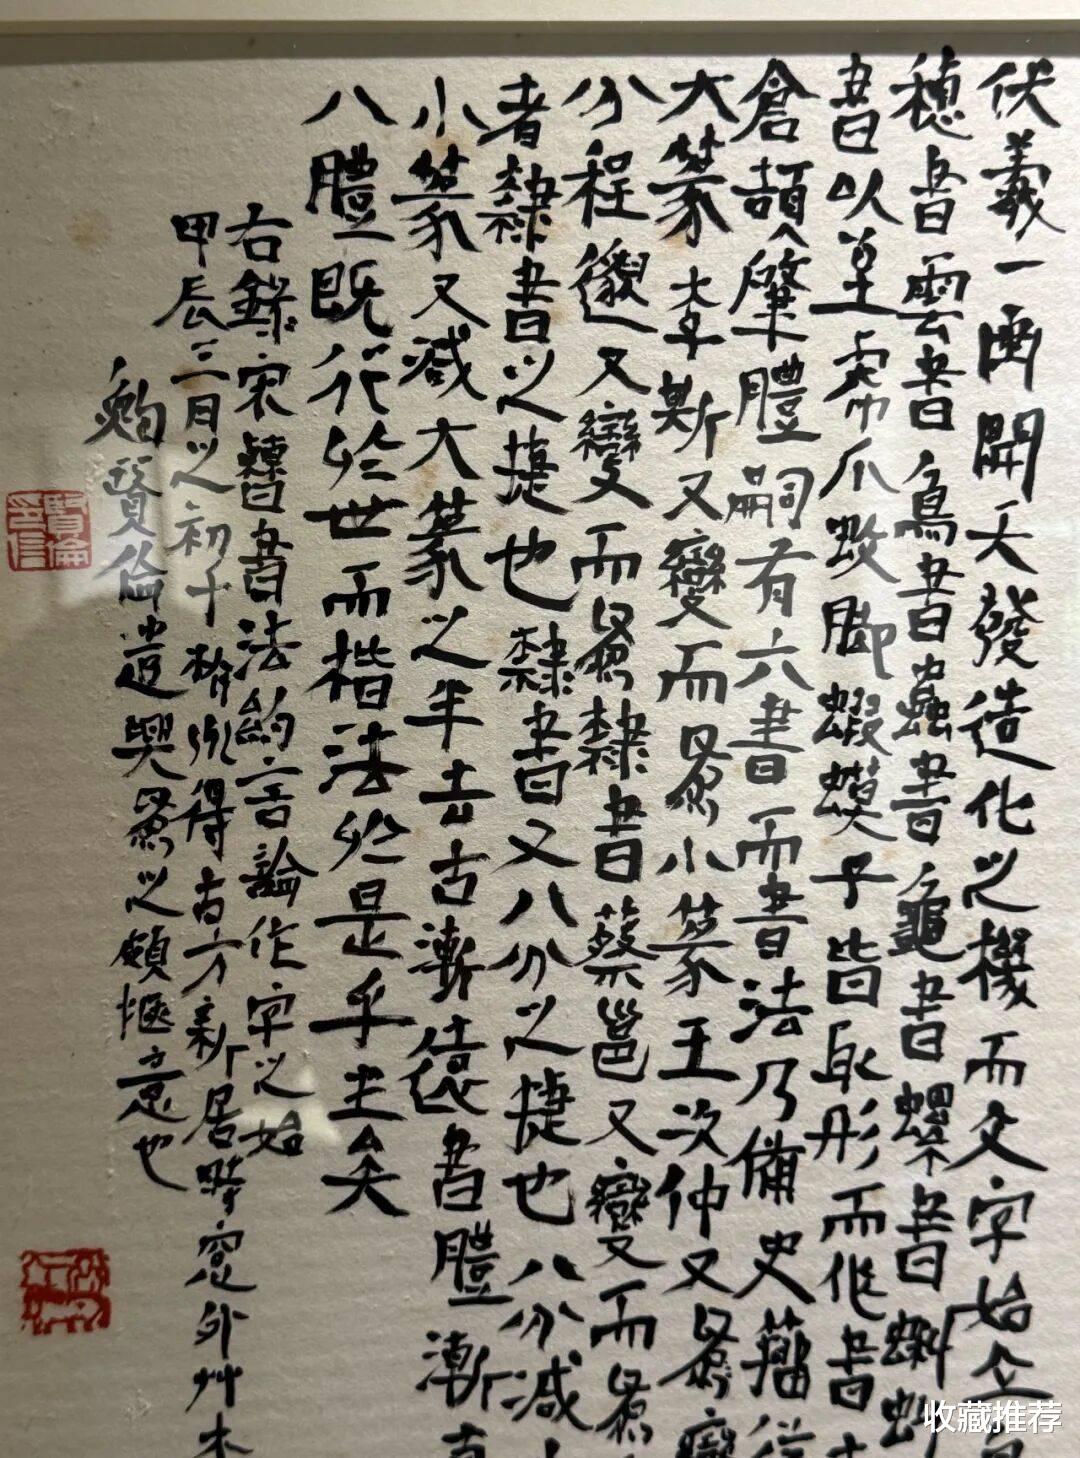 伏羲一畫開天發造化之機而文字始立
穗書雲書鳥書蟲書龜書螺書蝌蚪
書以至虎爪蚊腳蝦蟆子皆取形而作書
倉頡肇體嗣有六書而書法乃備史籀從
大篆李斯又變而爲小篆王次仲又爲八
分程邈又變而爲隸書蔡邕又變而爲
者隸書之捷也隸書又八分之捷也八分減小
小篆又減大篆以半去古漸遠書體漸真
八體既行於世而楷法於是乎生矣
右錄宋曹書法約言論作字之始
甲辰三月之初十得古方新居時窗外艸木
賢倫遣興爲之頗愜意也
賢倫
收藏推荐